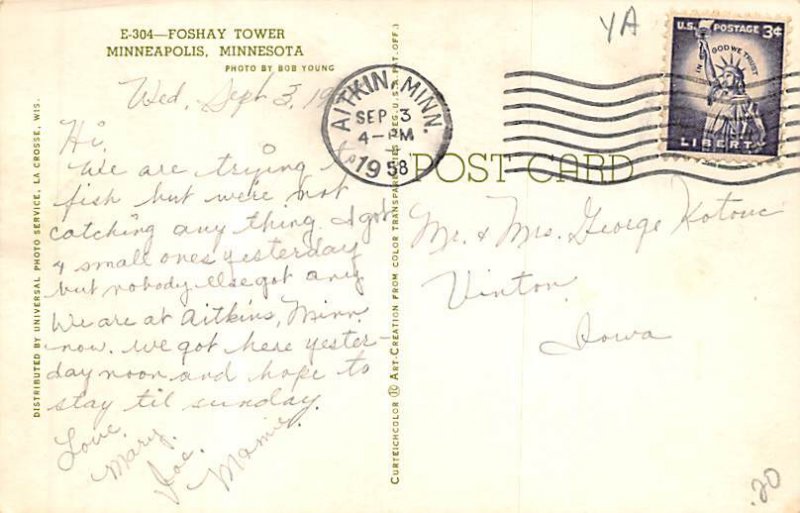 E-304—FOSHAY TOWER
MINNEAPOLIS, MINNESOTA
PHOTO BY BOB YOUNG
Wed, Sept 3, 19
Hi,
We are trying t
fish but we're not
catching any thing. I got
4 small ones yesterday
but nobody else got any
We are at Aitkins, Minn.
now. we got here yester-
day noon and hope to
stay til sunday.
Love.
Mary.
Joe.
Mamie.
DISTRIBUTED BY UNIVERSAL PHOTO SERVICE, LA CROSSE, WIS.
CURTEICHCOLOR ART-CREATION FROM COLOR TRANSPARENCIES REG. U.S.A. PAT. OFF.
AITKIN, MINN.
SEP 3
4-PM
1958
POST CARD
YA
U.S. POSTAGE 3¢
IN GOD WE TRUST
LIBERTY
Mr. & Mrs. George Kotouc
Vinton
Iowa
.20